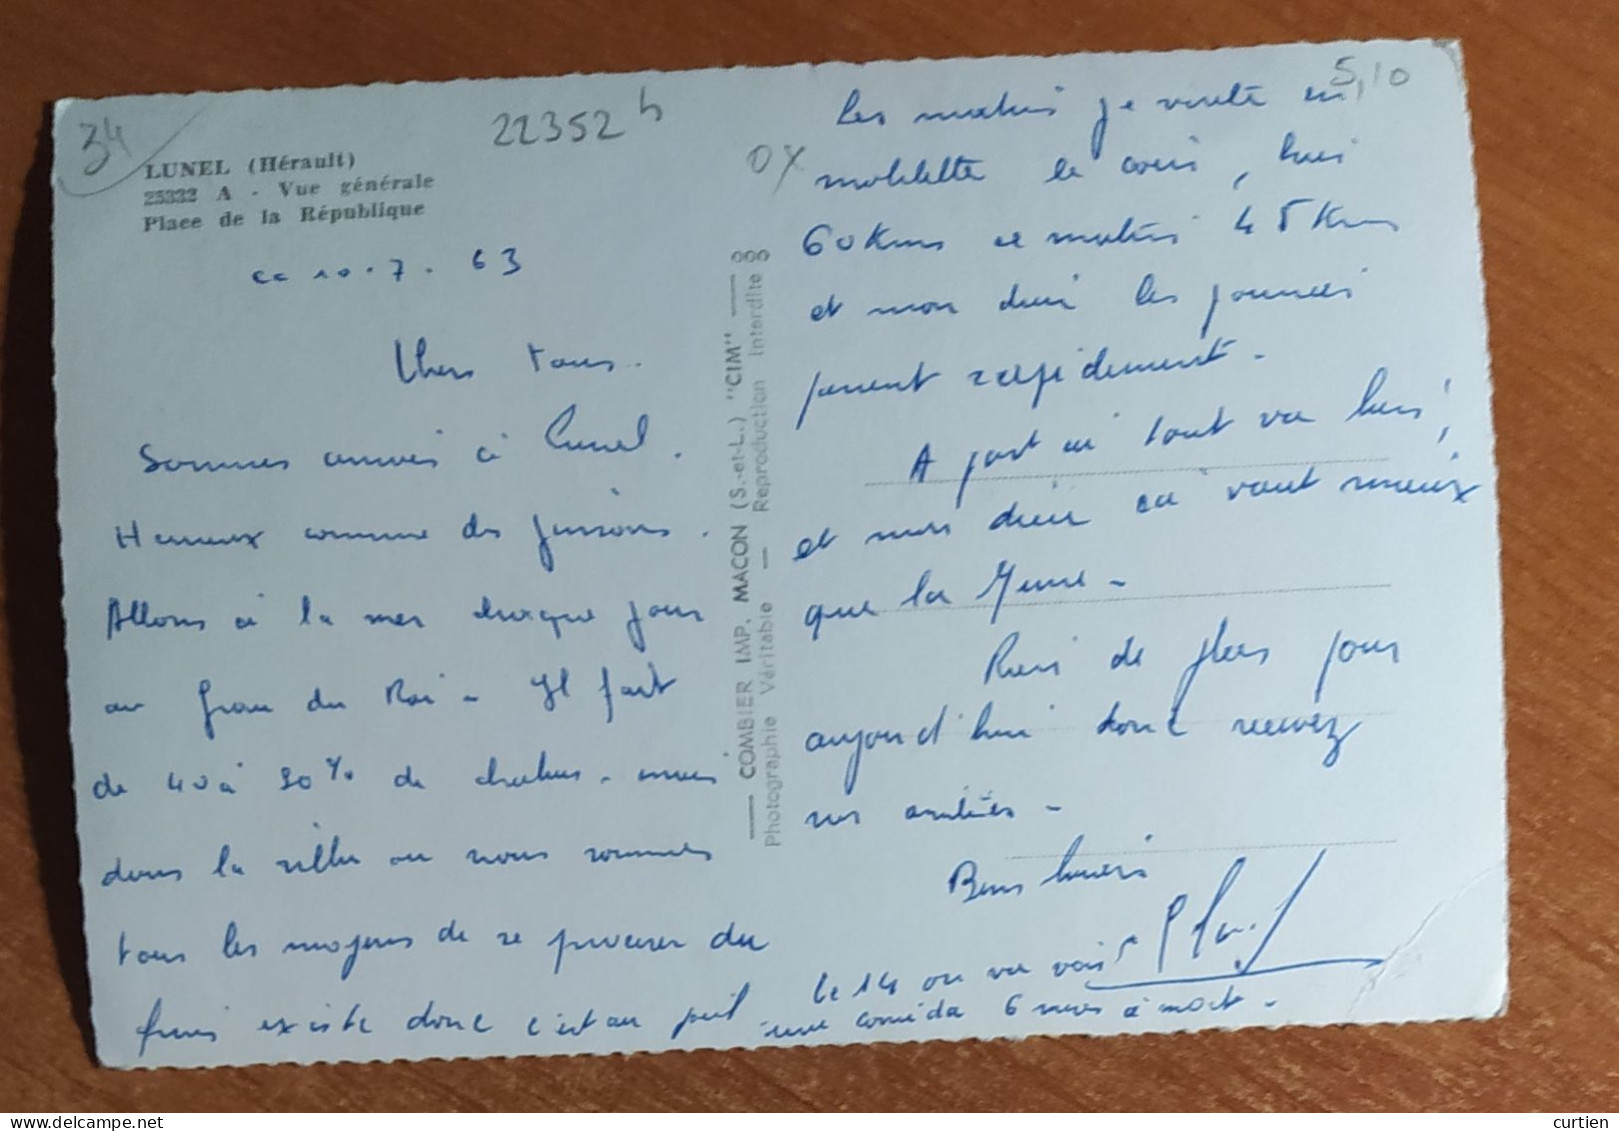 34
22352 h
LUNEL (Hérault)
25332 A - Vue générale
Place de la République
ce 10.7.63
Chers tous.
Sommes arrivés à Lunel.
Heureux comme des
Allons à la mer chaque jour
au Grau du Roi - Il fait
de 40 à 50% de chaleur - mais
dans la ville ou nous sommes
tous les moyens de se procurer du
frais existe donc c'est au poil
— COMBIER IMP. MACON (S.-et-L.) "CIM" —
Photographie Véritable — Reproduction Interdite
OX
5,10
Les matins je visite en
mobilette le coin, hier
60 Kms ce matin 45 Kms
et mon dieu les journées
passent rapidement -
A part ça tout va bien,
et mon dieu ça vaut mieux
que la
Rien de plus pour
aujourd'hui donc recevez
nos amitiés -
Bons baisers
le 14 on va voir
une corrida 6 mises à mort -
curtien